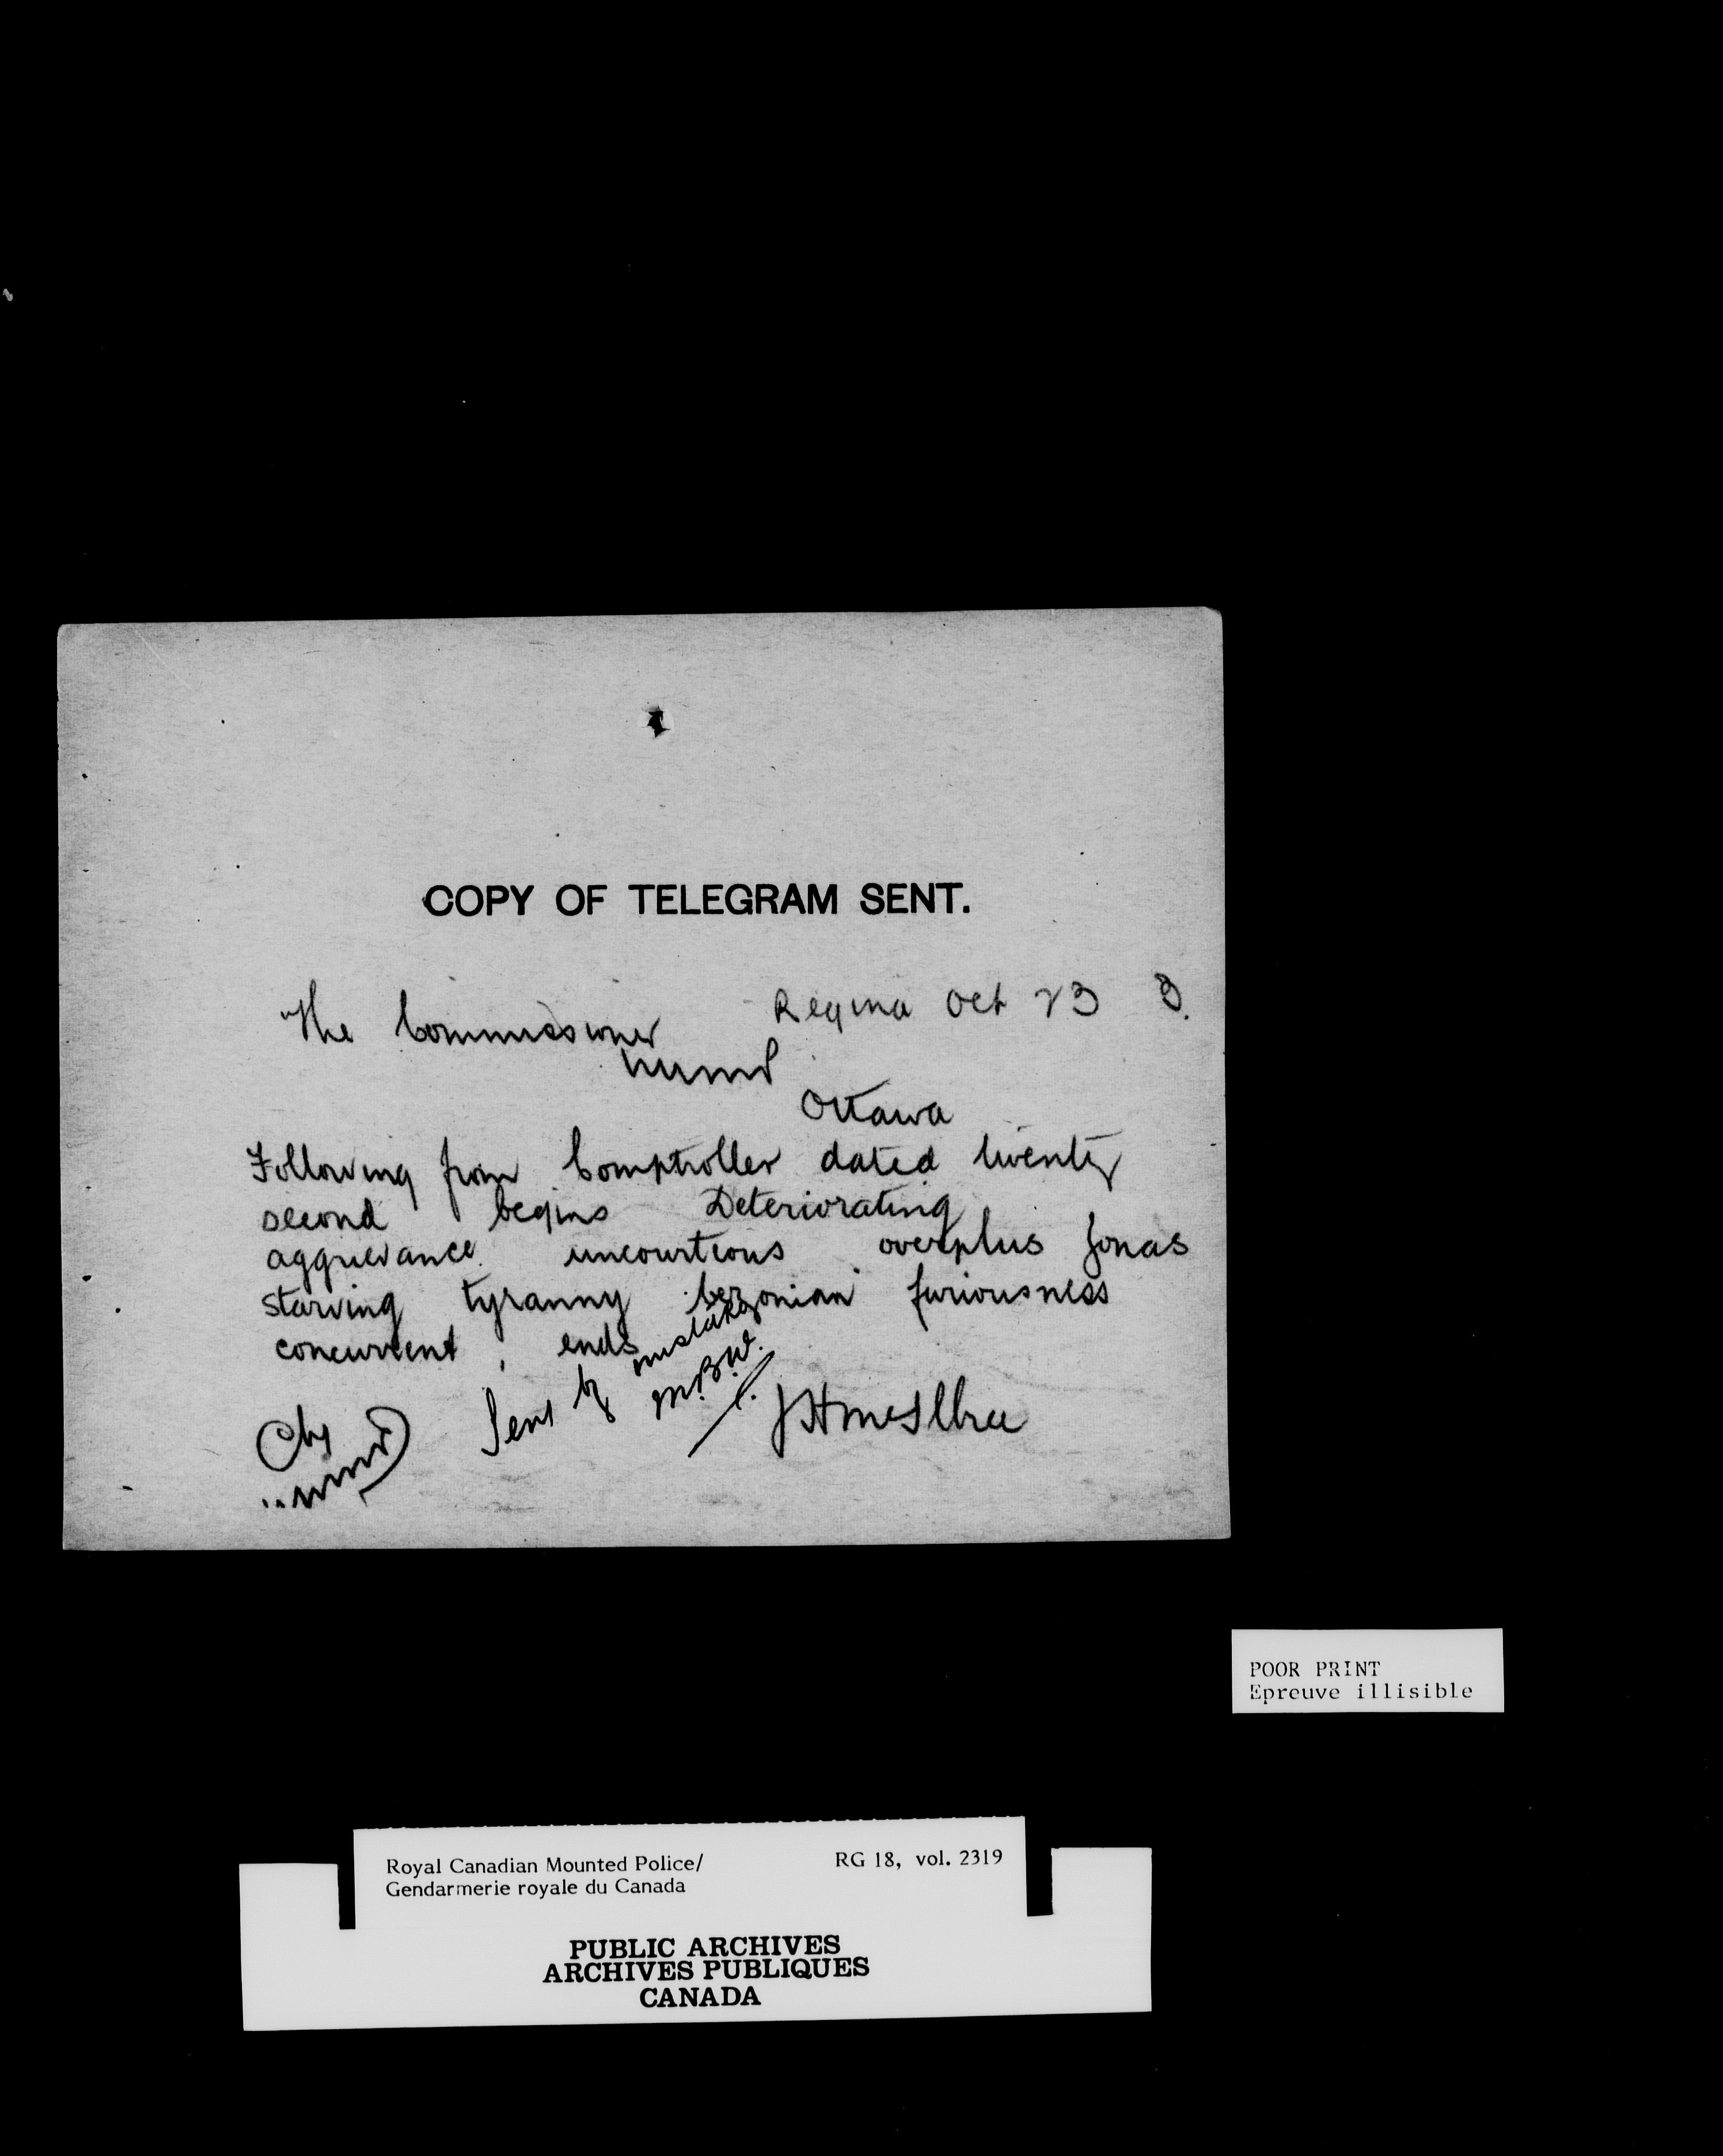 COPY OF TELEGRAM SENT.
Regina Oct 23 3.
The Commissioner
NWMP
Ottawa
Following from Comptroller dated twenty
second begins Deteriorating
aggrievance uncourteous overplus Jonas
starving tyranny bezonian furiousness
concurrent, ends
Sent by mistake
M.B.W.
Chg
NWMP
POOR PRINT
Epreuve illisible
Royal Canadian Mounted Police/ RG 18, vol. 2319
Gendarmerie royale du Canada
PUBLIC ARCHIVES
ARCHIVES PUBLIQUES
CANADA